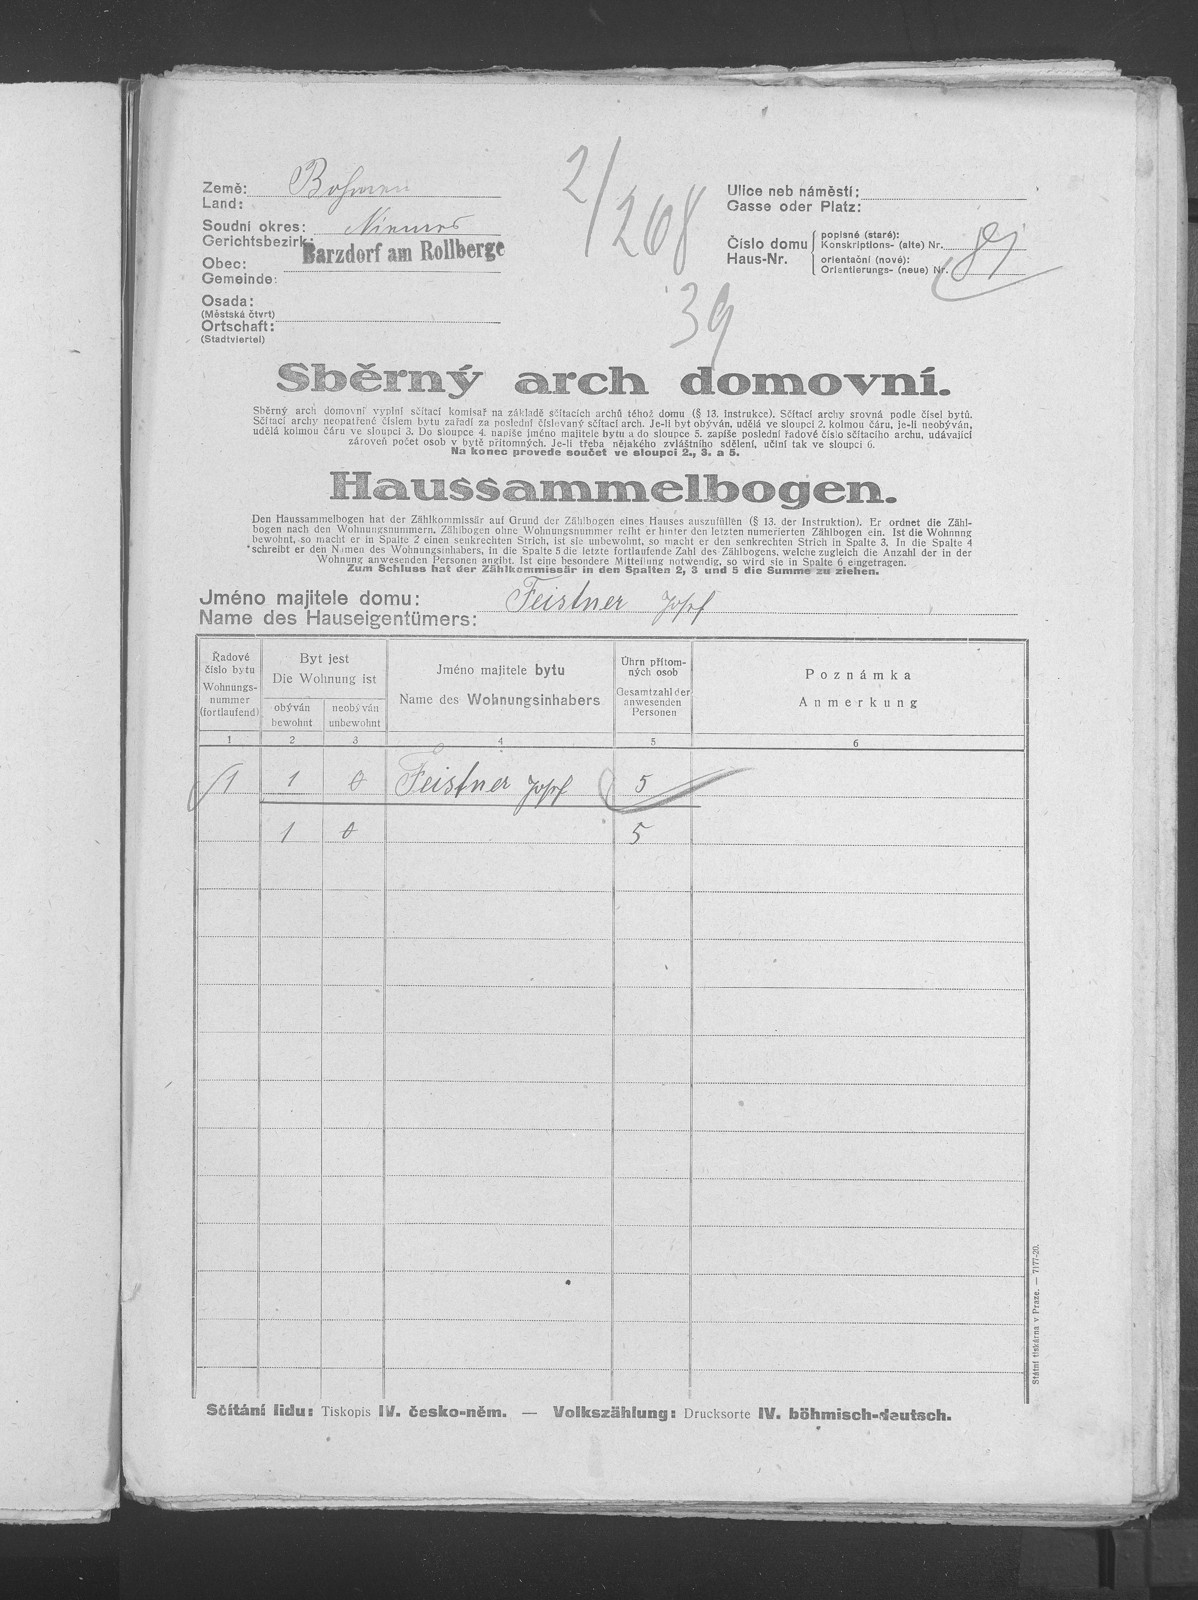 Země: Böhmen
Land:
Soudní okres: Niemes
Gerichtsbezirk:
Barzdorf am Rollberge
Obec:
Gemeinde:
Osada:
(Městská čtvrt)
Ortschaft:
(Stadtviertel)
2/268
39
Ulice neb náměstí:
Gasse oder Platz:
Číslo domu
Haus-Nr.
popisné (staré):
Konskriptions- (alte) Nr.
orientační (nové):
Orientierungs- (neue) Nr.
81
Sběrný arch domovní.
Sběrný arch domovní vyplní sčítací komisař na základě sčítacích archů téhož domu (§ 13. instrukce). Sčítací archy srovná podle čísel bytů.
Sčítací archy neopatřené číslem bytu zařadí za poslední číslovaný sčítací arch. Je-li byt obýván, udělá ve sloupci 2. kolmou čáru, je-li neobýván,
udělá kolmou čáru ve sloupci 3. Do sloupce 4. napíše jméno majitele bytu a do sloupce 5. zapíše poslední řadové číslo sčítacího archu, udávající
zároveň počet osob v bytě přítomných. Je-li třeba nějakého zvláštního sdělení, učiní tak ve sloupci 6.
Na konec provede součet ve sloupci 2., 3. a 5.
Haussammelbogen.
Den Haussammelbogen hat der Zählkommissär auf Grund der Zählbogen eines Hauses auszufüllen (§ 13. der Instruktion). Er ordnet die Zähl-
bogen nach den Wohnungsnummern. Zählbogen ohne Wohnungsnummer reiht er hinter den letzten numerierten Zählbogen ein. Ist die Wohnung
bewohnt, so macht er in Spalte 2 einen senkrechten Strich, ist sie unbewohnt, so macht er den senkrechten Strich in Spalte 3. In die Spalte 4
schreibt er den Namen des Wohnungsinhabers, in die Spalte 5 die letzte fortlaufende Zahl des Zählbogens, welche zugleich die Anzahl der in der
Wohnung anwesenden Personen angibt. Ist eine besondere Mitteilung notwendig, so wird sie in Spalte 6 eingetragen.
Zum Schluss hat der Zählkommissär in den Spalten 2, 3 und 5 die Summe zu ziehen.
Jméno majitele domu: Feistner Josef
Name des Hauseigentümers:
Řadové
číslo bytu
Wohnungs-
nummer
(fortlaufend)
Byt jest
Die Wohnung ist
obýván
bewohnt
neobýván
unbewohnt
Jméno majitele bytu
Name des Wohnungsinhabers
Úhrn přítom-
ných osob
Gesamtzahl der
anwesenden
Personen
Poznámka
Anmerkung
1 2 3 4 5 6
1 1 0 Feistner Josef 5
1 0 5
Státní tiskárna v Praze. — 7177-20.
Sčítání lidu: Tiskopis IV. česko-něm. — Volkszählung: Drucksorte IV. böhmisch-deutsch.